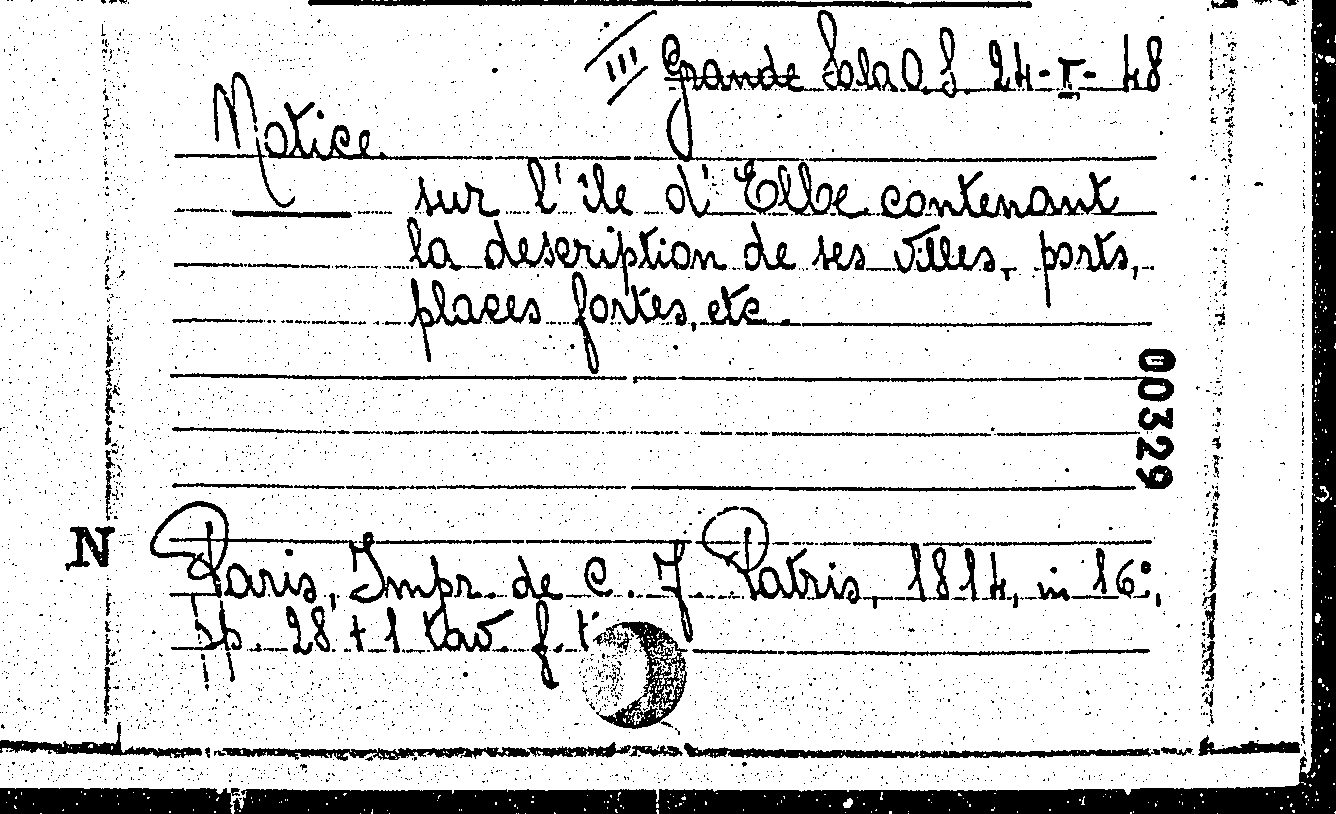 III Grande Sala O. S. 24-I-48
Notice
sur l'île d'Elbe contenant
la description de ses villes, ports,
places fortes, etc.
00329
N
Paris, Impr. de C. J. Patris, 1814, in 16°,
pp. 28 + 1 tav. f. t.